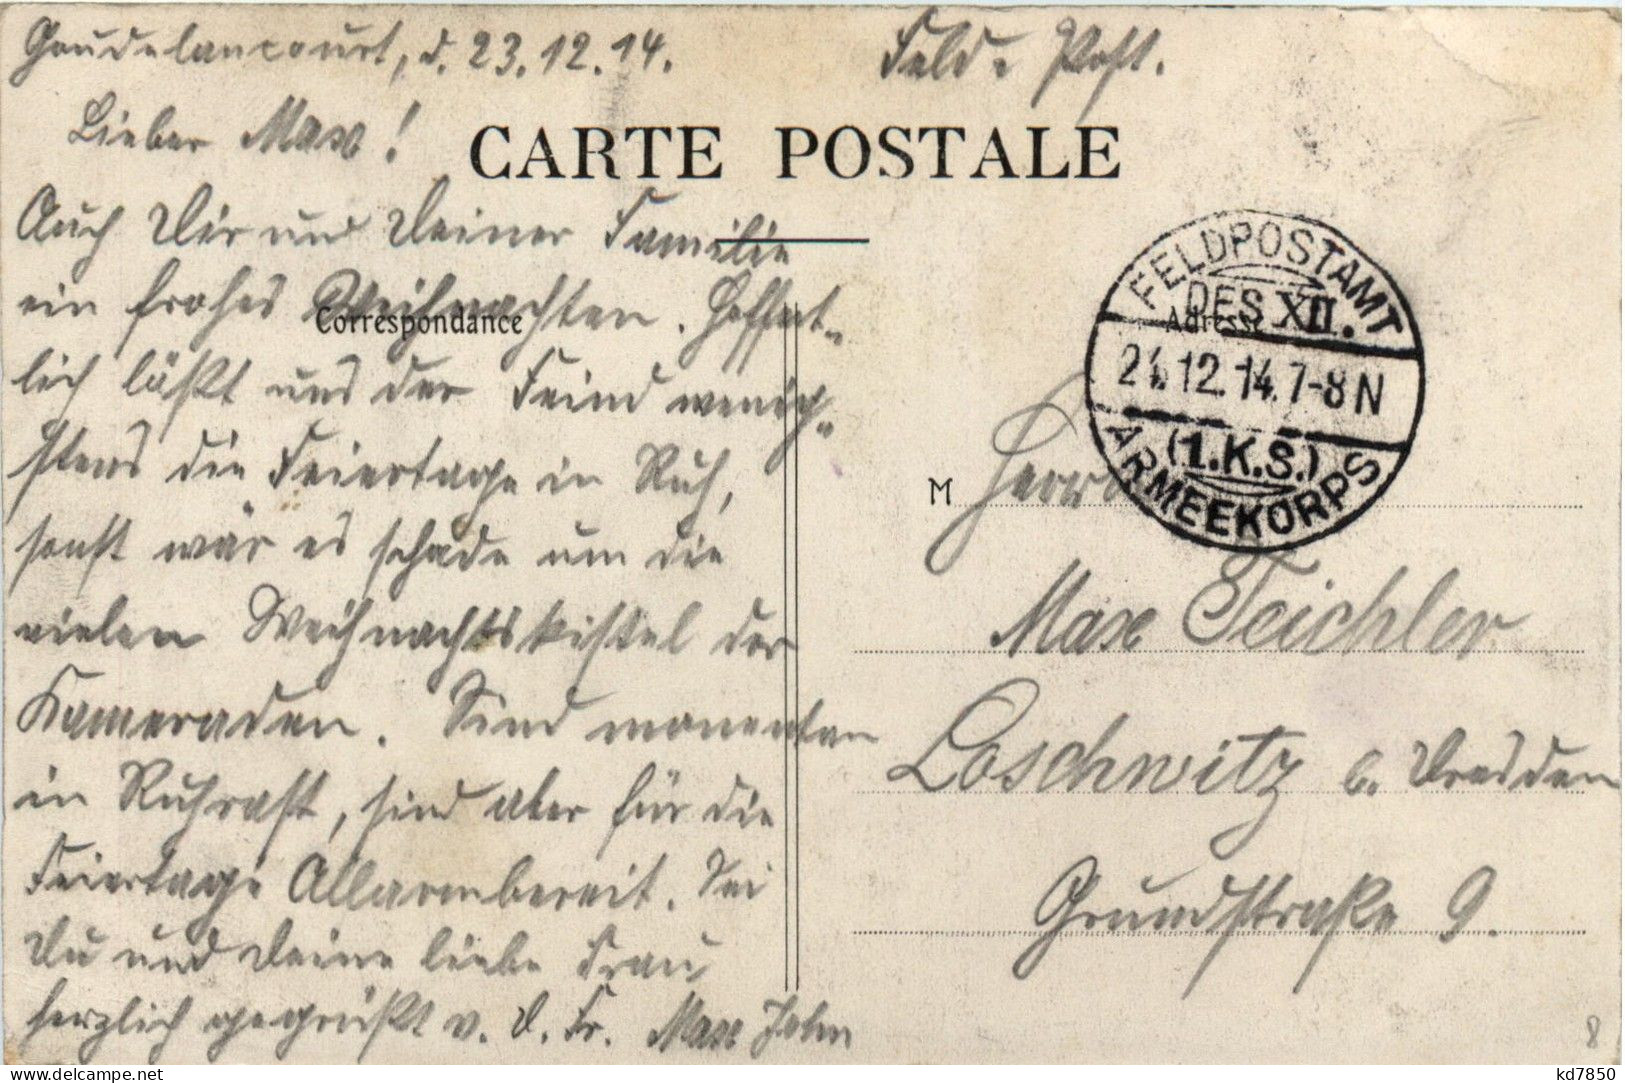 Goudelancourt, d. 23.12.14.
Feld-Post.
Lieber Max!
CARTE POSTALE
Auch Dir und Deiner Familie
ein frohes Weihnachten. Hoffent-
lich läßt uns der Feind wenig-
stens die Feiertage in Ruh,
sonst wär es schade um die
vielen Weihnachtskistel der
Kameraden. Sind momentan
in Ruhrast, sind aber für die
Feiertage Allarmbereit. Sei
Du und Deine liebe Frau
herzlich gegrüßt v. D. Fr. Max John
Correspondance
Adresse
FELDPOSTAMT
DES XII.
24.12.14.7-8N
(1.K.S.)
ARMEEKORPS
M Herrn
Max Teichler
Loschwitz b. Dresden
Grundstraße 9.
8
kd7850